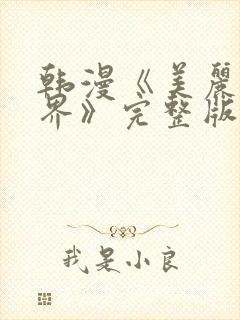 韩漫《美麗
界》完整版
我是小良